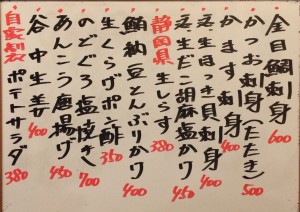 金目鯛刺身 600
かつお刺身(たたき) 500
かます刺身 400
生ほっき貝刺身 400
生だこ胡麻塩かり 450
静岡県 生しらす 380
鮪納豆とんぶりかけ 400
生くらげポン酢 350
のどぐろ塩焼き 700
あんこう唐揚げ 450
谷中生姜 400
自家製 ポテトサラダ 380